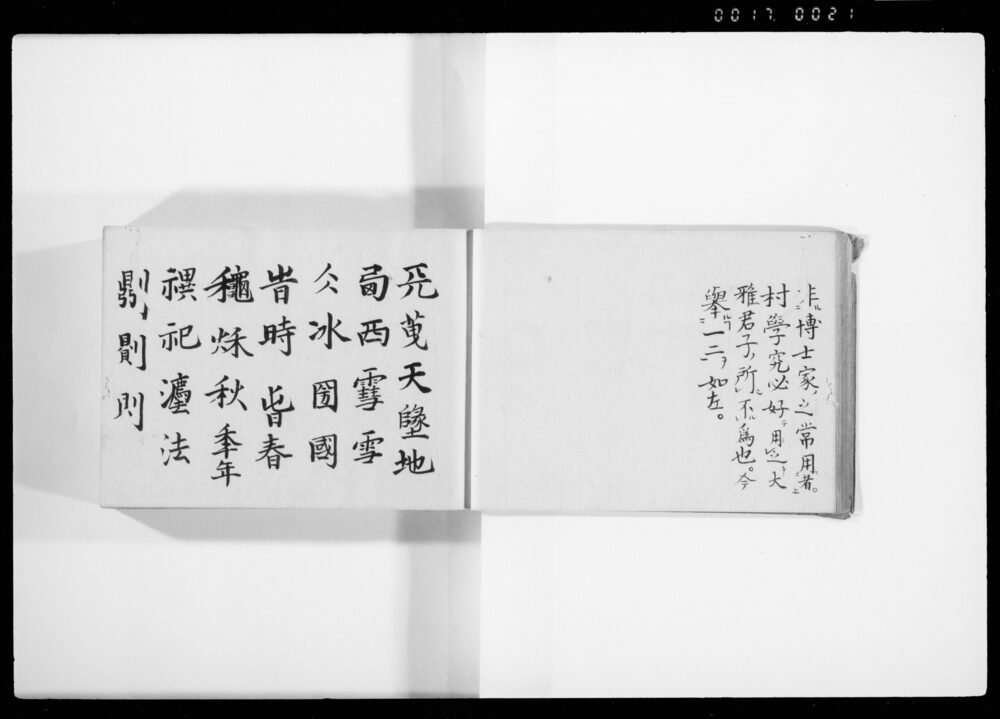 0017 0021
非博士家ノ之常用者。
村學究必好用之大
雅君子ノ所不爲也。今
擧一二ヲ如左。
兂萈天墬地
卥西䨮雪
仌冰圀國
旹時旾春
龝烁秋秊年
禩祀灋法
鼎刂㓝則